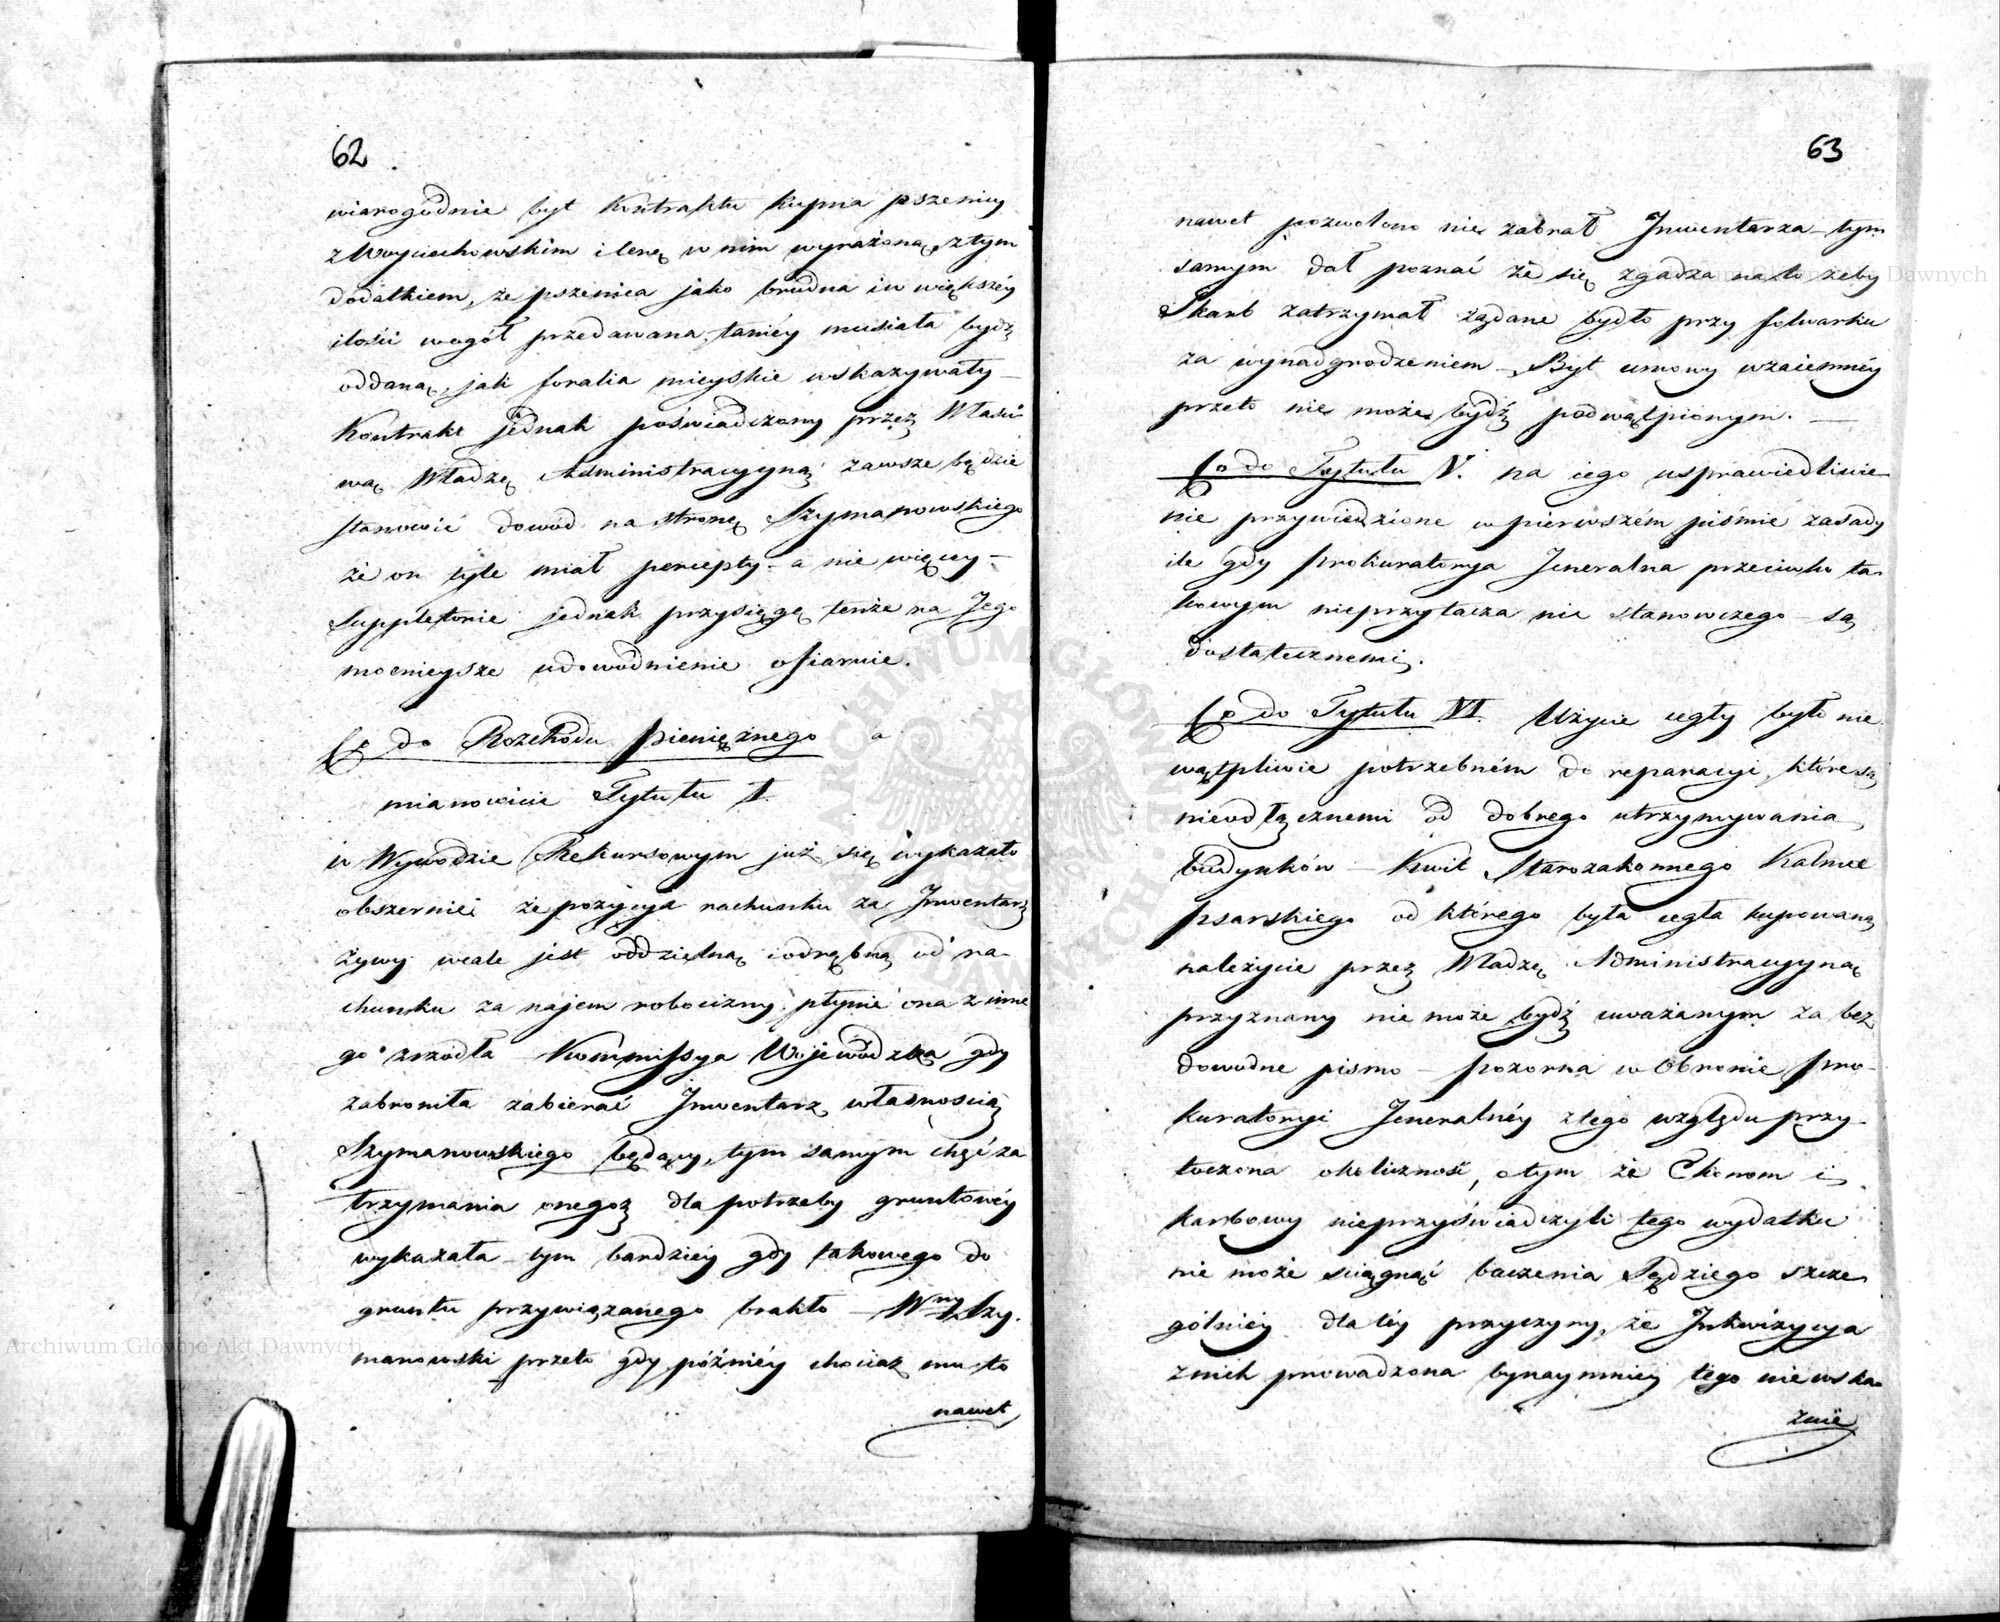 62
wiarogodnie byt Kontraktu kupna pszenicy
z Woyciechowskim i cenę w nim wyrażoną, z tym
dodatkiem, że pszenica jako brudna i w większéy
ilości wogół przedawana, taniéy musiała bydź
oddaną, jak foralia mieyskie wskazywały –
Kontrakt jednak poświadczony przez Właści-
wą Władzę Administracyyną zawsze będzie
stanowić dowód na stronę Szymanowskiego
że on tyle miał percepty – a nie więcey –
Suppletorie jednak przysięgę tenże na Jego
mocnieysze udowodnienie ofiaruie.
Co do Rozchodu pieniężnego a
mianowicie Tytułu I.
w Wywodzie Rekursowym już się wykazało
obszerniei że pozycya rachunku za Inwentarz
żywy wcale jest oddzielną i odrębną od ra-
chunku za najem robocizny, płynie ona z inne
go zrzódła – Kommissya Wojewódzka gdy
zabroniła zabierać Inwentarz własnością
Szymanowskiego będący, tym samym chęć za
trzymania onegoż dla potrzeby gruntowéy
wykazała – tym bardziéy gdy takowego do
gruntu przywiązanego brakło – Wny Szy.
manowski przeto gdy późniéy chociaż mu to
nawet
63
nawet pozwolono nie zabrał Inwentarza – tym
samym dał poznać że się zgadza na to żeby
Skarb zatrzymał żądane bydło przy folwarku
za wynadgrodzeniem – Byt umowy wzaiemnéy
przeto nie może bydź podwątpionym. –
Co do Tytułu V. na iego usprawiedliwie-
nie przywiedzione w pierwszém piśmie zasady
ile gdy Prokuratorya Jeneralna przeciwko ta-
kowym nieprzytacza nic stanowczego – są
dostatecznemi.
Co do Tytułu VI. Użycie cegły było nie
wątpliwie potrzebném do reparacyi, które są
nieodłącznemi od dobrego utrzymywania
budynków – Kwit Starozakonnego Kalmee
Psarskiego od którego była cegła kupowaną
należycie przez Władzę Administracyyną
przyznany nie może bydź uważanym za bez
dowodne pismo – pozorna w Obronie Pro-
kuratoryi Jeneralnéy z tego względu przy-
toczona okoliczność, o tym że Ekonom i
karbowy nieprzyświadczyli tego wydatku
nie może ściągnąć baczenia Sędziego szcze
gólniéy dla téy przyczyny, że Inkwizycya
z nich prowadzona bynaymniéy tego niewska-
zuie
Archiwum Główne Akt Dawnych